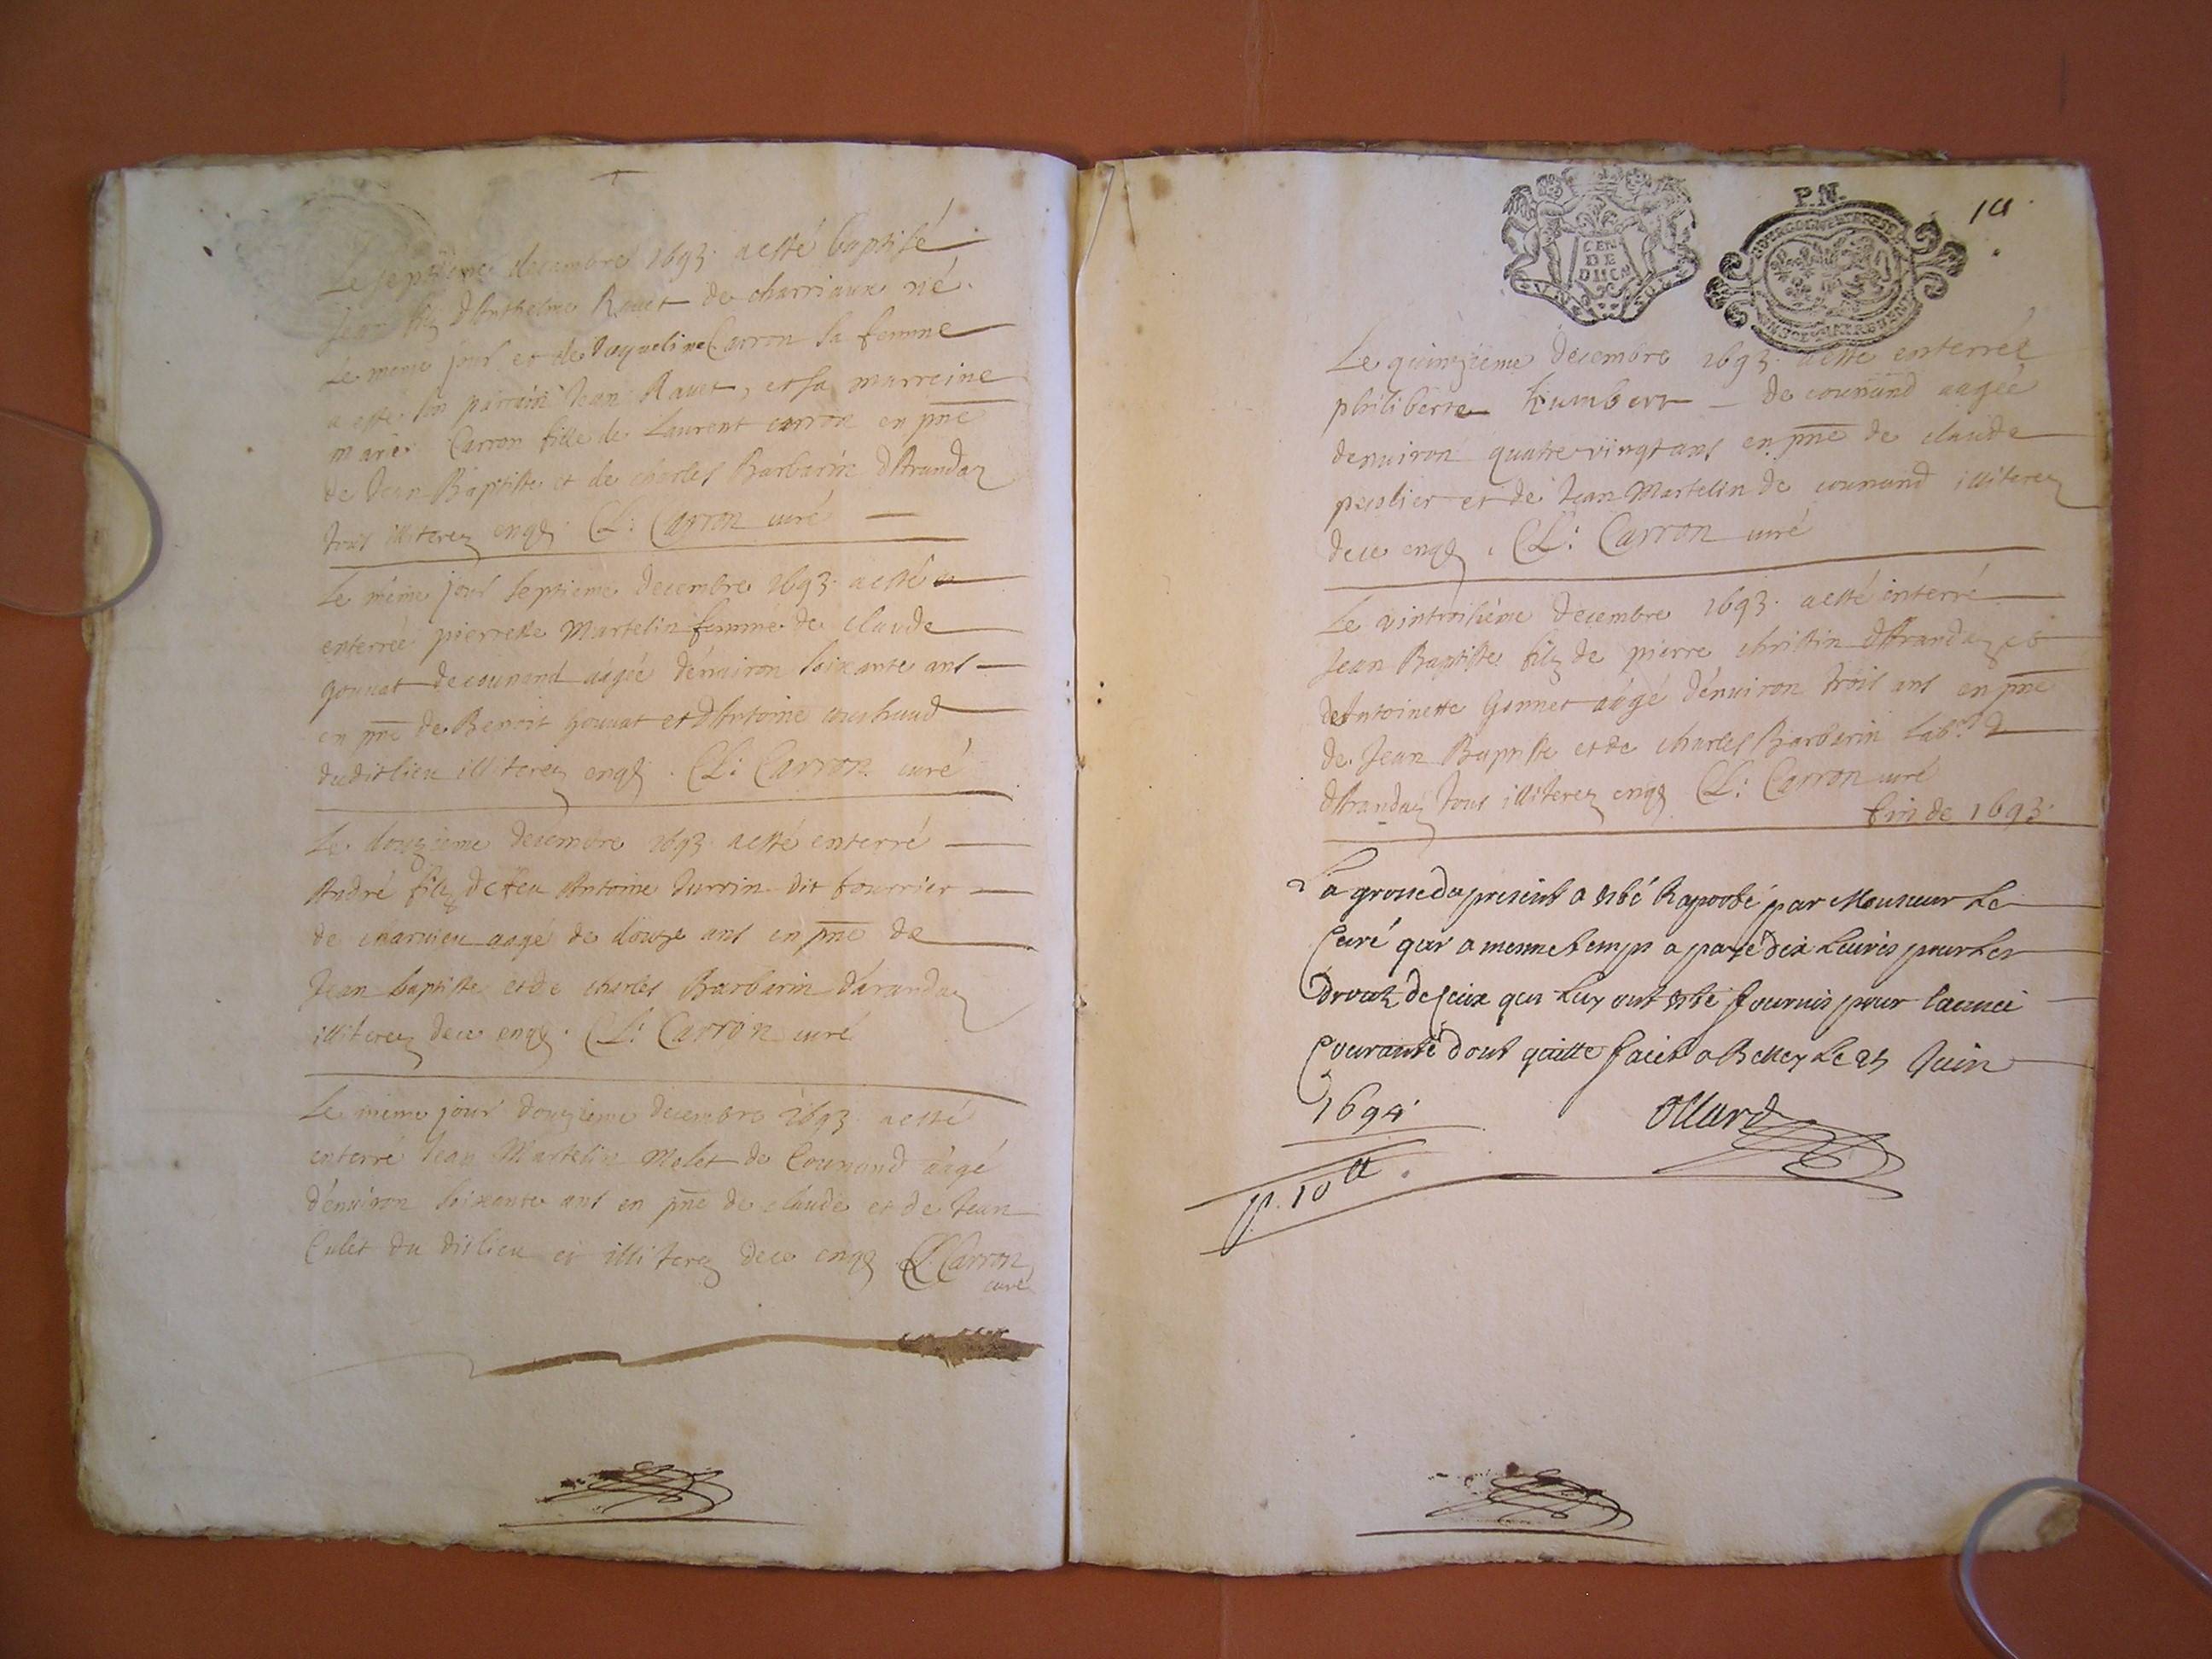 Le septieme decembre 1693. a esté baptisé
Jean filz d'Anthelme Rauet de charriaux né
Le meme jour et de Jaqueline Carron sa femme
a esté son parrain Jean Rauet, et sa marreine
marie Carron fille de Laurent carron en pñce
de Jean Baptiste et de charles Barbarin d'Arandaz
tous illiterez enqs. Cl: Carron curé
Le même jour septieme decembre 1693. a esté
enterrée pierrette Martelin femme de claude
gouuat de counand aagée d'enuiron soixante ans
en pñce de Benoit gouuat et d'Antoine
dudit lieu illiterez enqs. Cl: Carron curé
Le douzieme decembre 1693. a esté enterré
André filz de feu Antoine Jurrin dit fourrier
de charuieu aagé de douze ans en pñce de
Jean baptiste et de charles Barbarin d'arandaz
illiterez de ce enqs. Cl: Carron curé
Le meme jour douzieme decembre 1693. a esté
enterré Jean Martelin Melet de Counand aagé
d'enuiron soixante ans en pñce de claude et de Jean
Culet du dit lieu et illiterez de ce enqs Cl. Carron
curé
P.N.
GEN
DE
DIION
Le quinzieme decembre 1693. a esté enterrée
philiberte humbert de counand aagée
denuiron quatre vingt ans en pñce de claude
peyslier et de Jean Martelin de counand illiterez
de ce enqs. Cl: Carron curé
Le vintroisième decembre 1693. a esté interré
Jean Baptiste filz de pierre christin d'Arandaz et
de Antoinette Gonnet aagé d'enuiron trois ans en pñce
de Jean Baptiste et de charles Barbarin labr.
d'Arandaz tous illiterez enqs Cl: Carron curé
fin de 1693.
La grosse du present a esté Raporté par Monsieur Le
Curé qui a mesme temps a payé dix Liures pour les
Droits de ceux qui luy ont esté fournis pour l'année
Courante dont quitte faict a Belley Le 25 Juin
1694
Ollard
p. 10 tt.